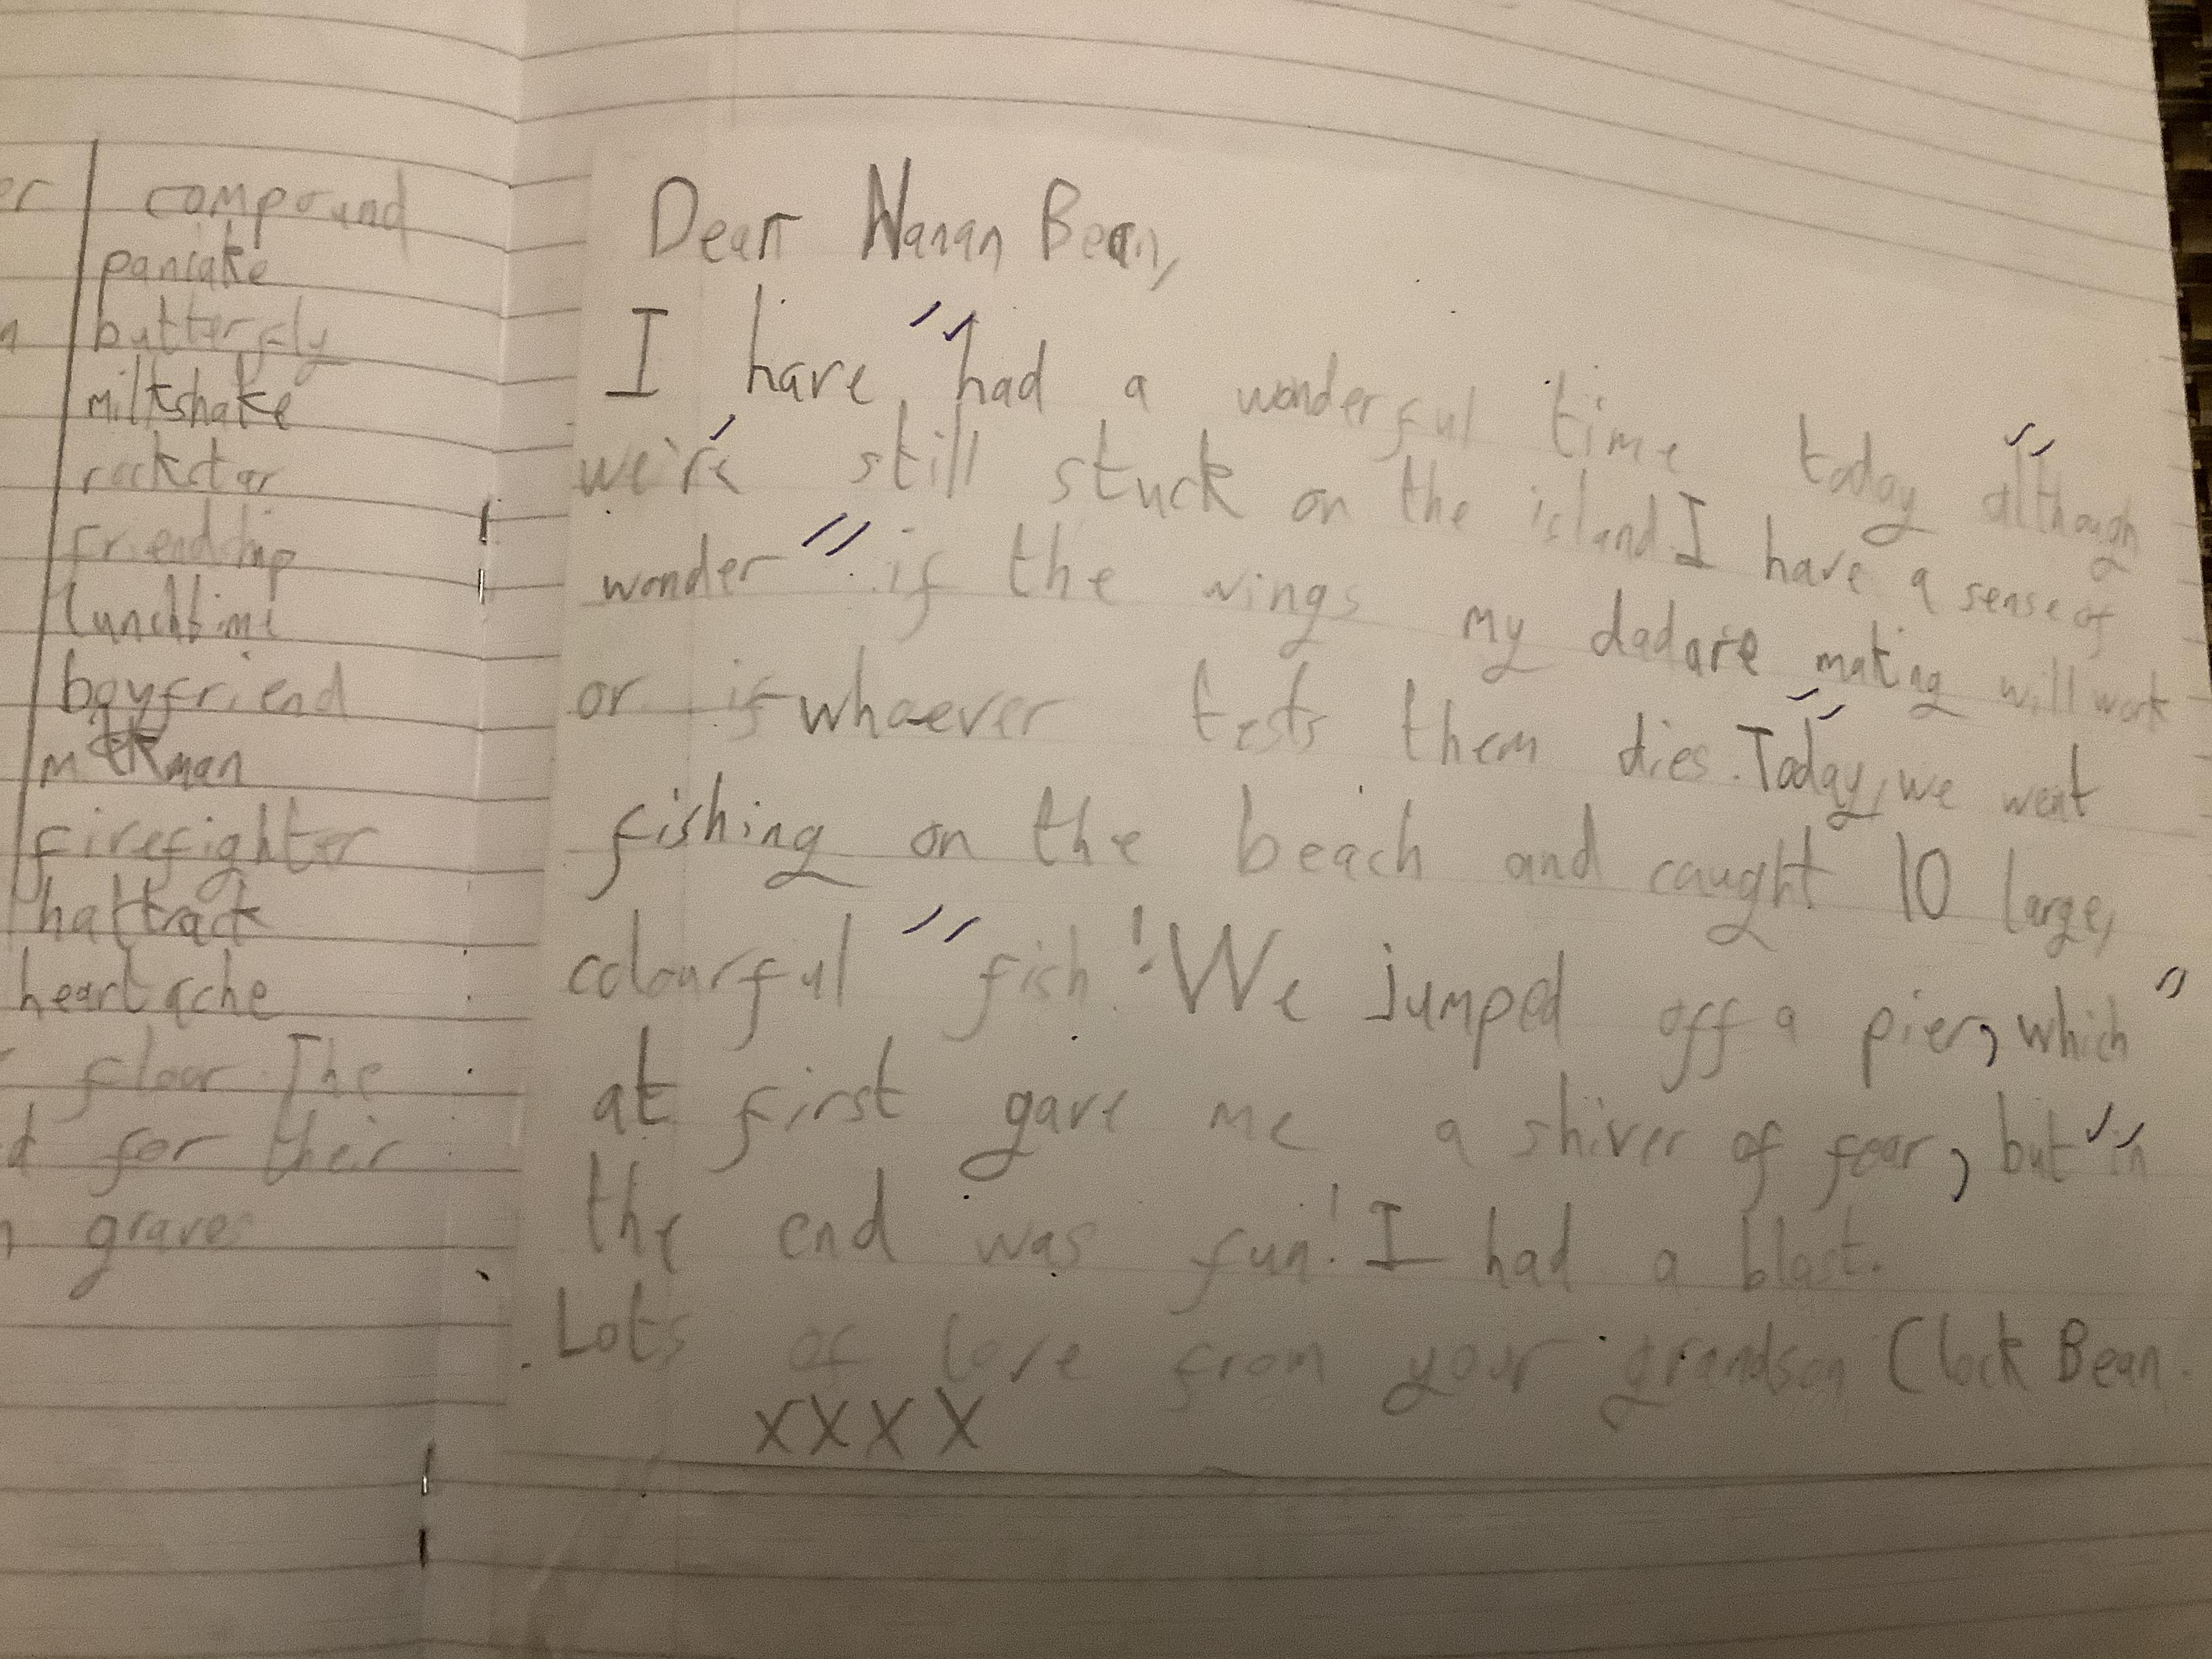 er compound
pancake
n butterfly
milkshake
rockstar
friendship
lunchtime
boyfriend
milkman
firefighter
hattrack
heartache
floor The
d for their
graves
Dear Nanan Bean,
I have had a wonderful time today although
we're still stuck on the island I have a sense of
wonder if the wings my dad are making will work
or if whoever tests them dies. Today, we went
fishing on the beach and caught 10 large,
colourful fish! We jumped off a pier, which
at first gave me a shiver of fear, but in
the end was fun! I had a blast.
Lots of love from your grandson Clock Bean.
xxxx